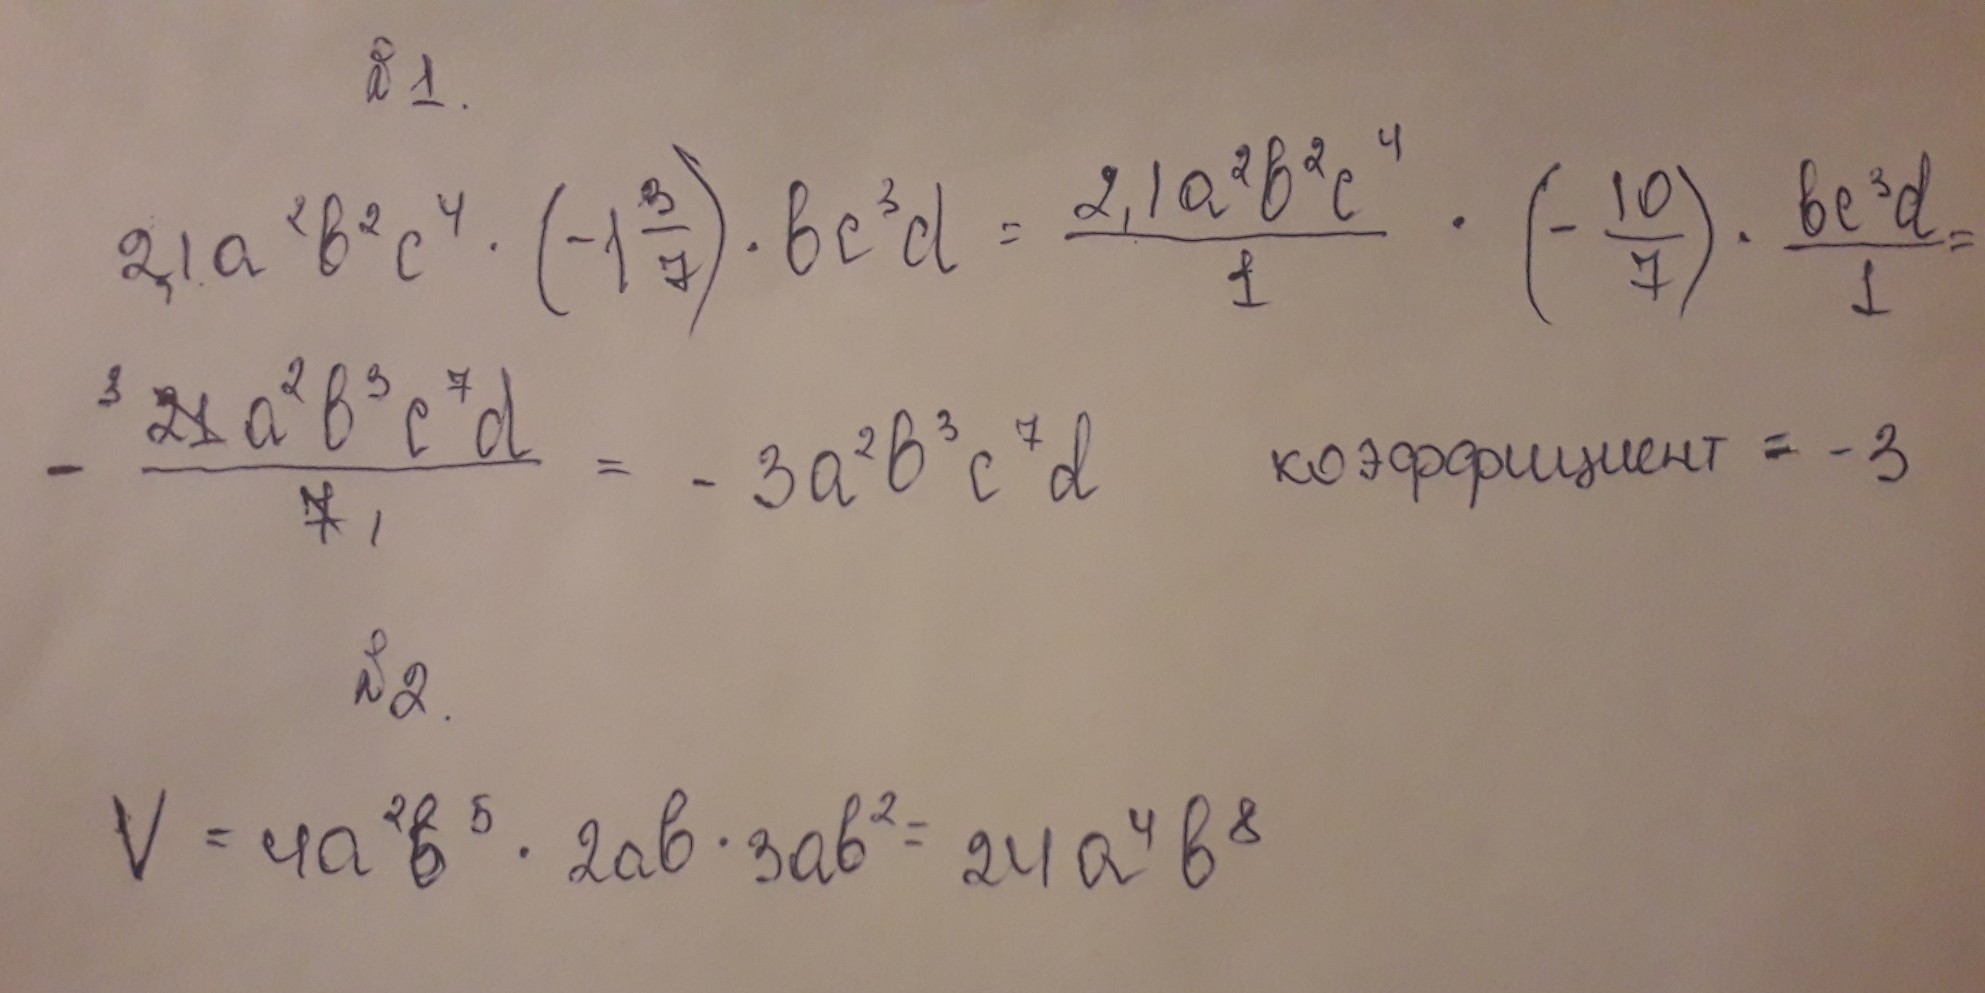 №1.
2,1a²b²c⁴ · (-1 3/7) · bc³d = 2,1a²b²c⁴/1 · (- 10/7) · bc³d/1 =
- ³21a²b³c⁷d/7₁ = - 3a²b³c⁷d коэффициент = -3
№2.
V = 4a²b⁵ · 2ab · 3ab² = 24a⁴b⁸